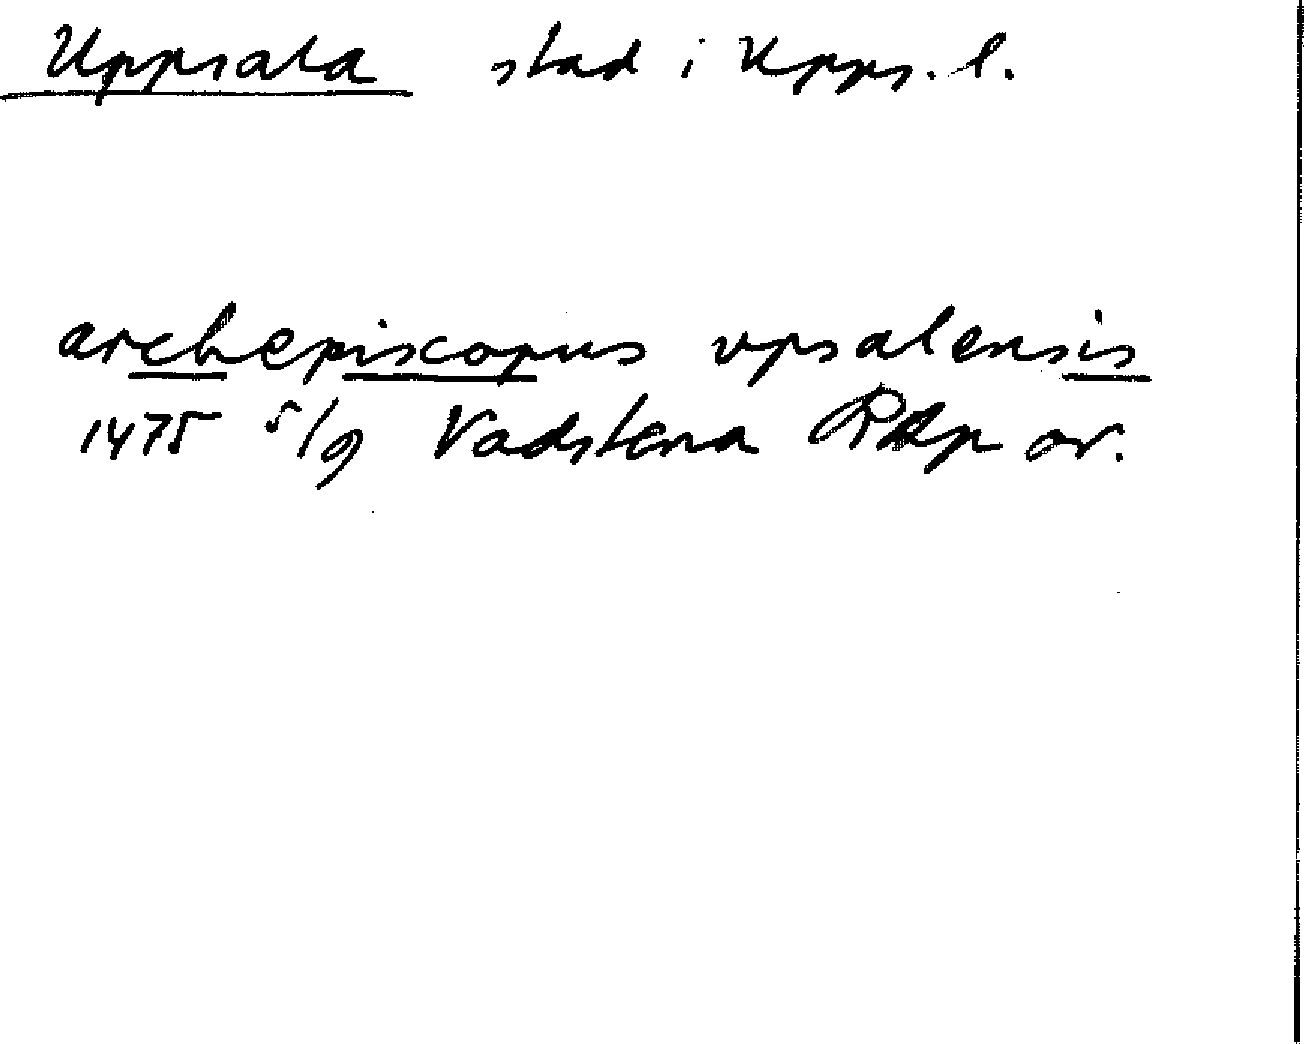 Uppsala stad i Upps. l.
archepiscopus upsalensis
1475 5/9 Vadstena RAp or.